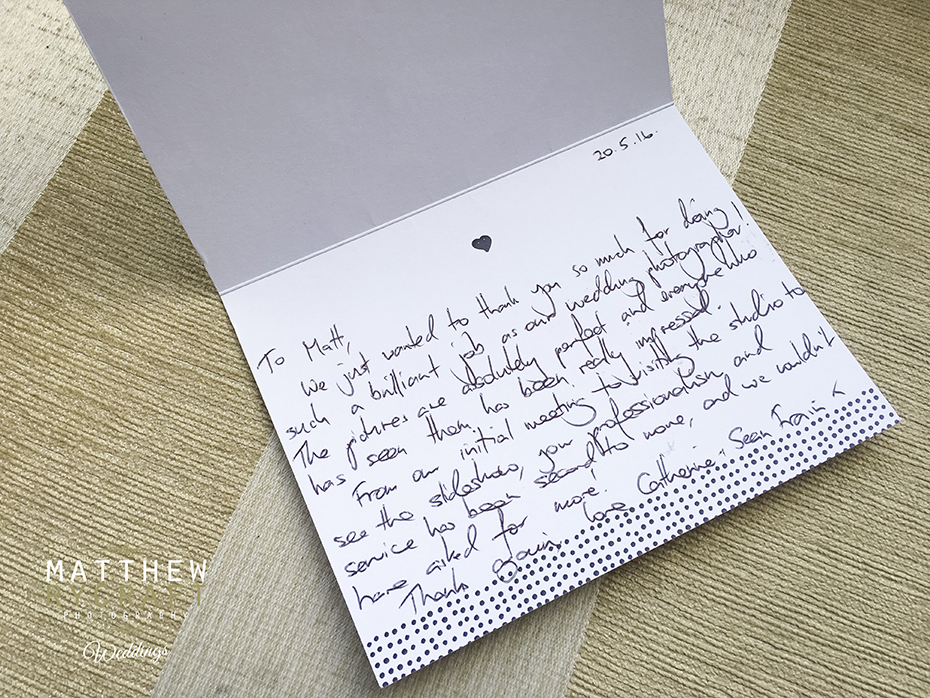 20.5.16.
To Matt,
We just wanted to thank you so much for doing
such a brilliant job as our wedding photographer!
The pictures are absolutely perfect and everyone who
has seen them, has been really impressed.
From our initial meeting to visiting the studio to
see the slideshow, your professionalism and
service has been second to none, and we wouldn't
have asked for more!
Thanks again, love Catherine, Sean
MATTHEW
PHOTOGRAPHY
Weddings